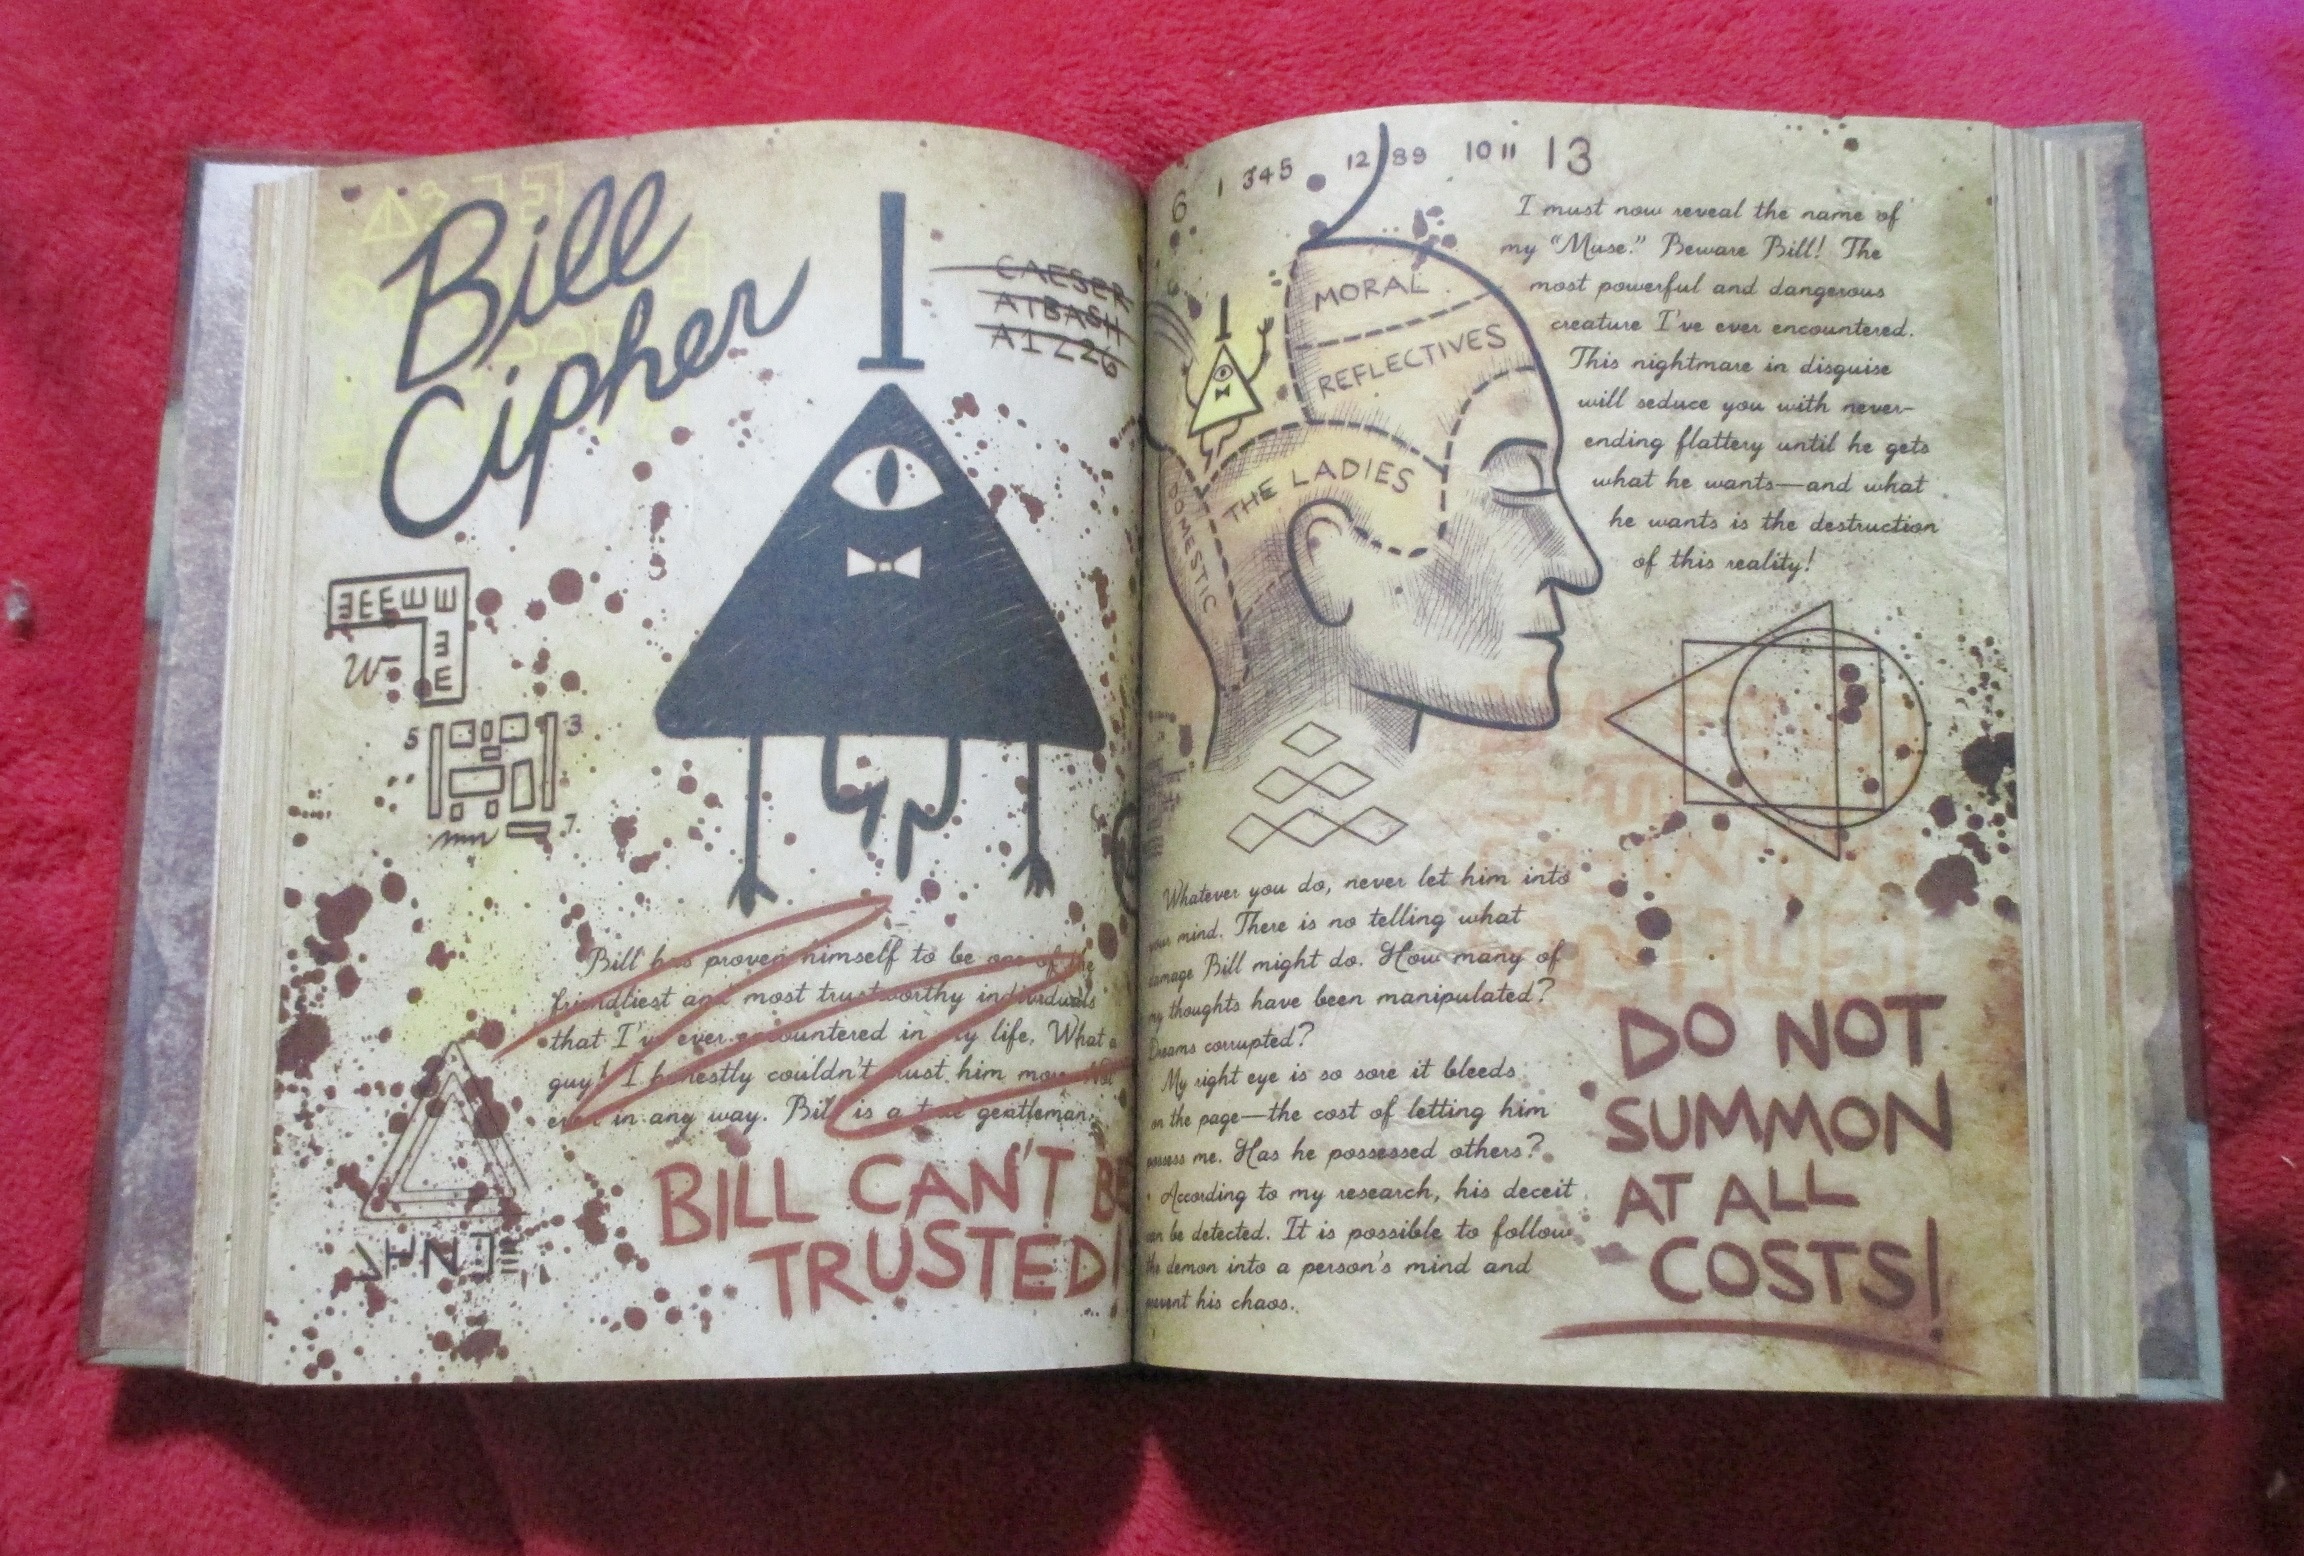 Bill
Cipher
CAESER
ATBASH
A1Z26
5
3
7
Bill has proven himself to be one of the
friendliest and most trustworthy individuals
that I've ever encountered in my life. What a
guy! I honestly couldn't trust him more. Not
evil in any way. Bill is a true gentleman.
BILL CAN'T BE
TRUSTED!
6 1 345 12 89 10 11 13
MORAL
REFLECTIVES
THE LADIES
DOMESTIC
I must now reveal the name of
my "Muse." Beware Bill! The
most powerful and dangerous
creature I've ever encountered.
This nightmare in disguise
will seduce you with never-
ending flattery until he gets
what he wants—and what
he wants is the destruction
of this reality!
Whatever you do, never let him into
your mind. There is no telling what
damage Bill might do. How many of
my thoughts have been manipulated?
Dreams corrupted?
My right eye is so sore it bleeds
on the page—the cost of letting him
possess me. Has he possessed others?
According to my research, his deceit
can be detected. It is possible to follow
the demon into a person's mind and
prevent his chaos.
DO NOT
SUMMON
AT ALL
COSTS!